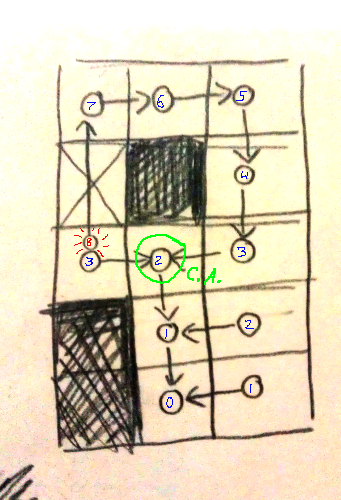 7 6 5
4
8
3 2 3
C.A.
1 2
0 1